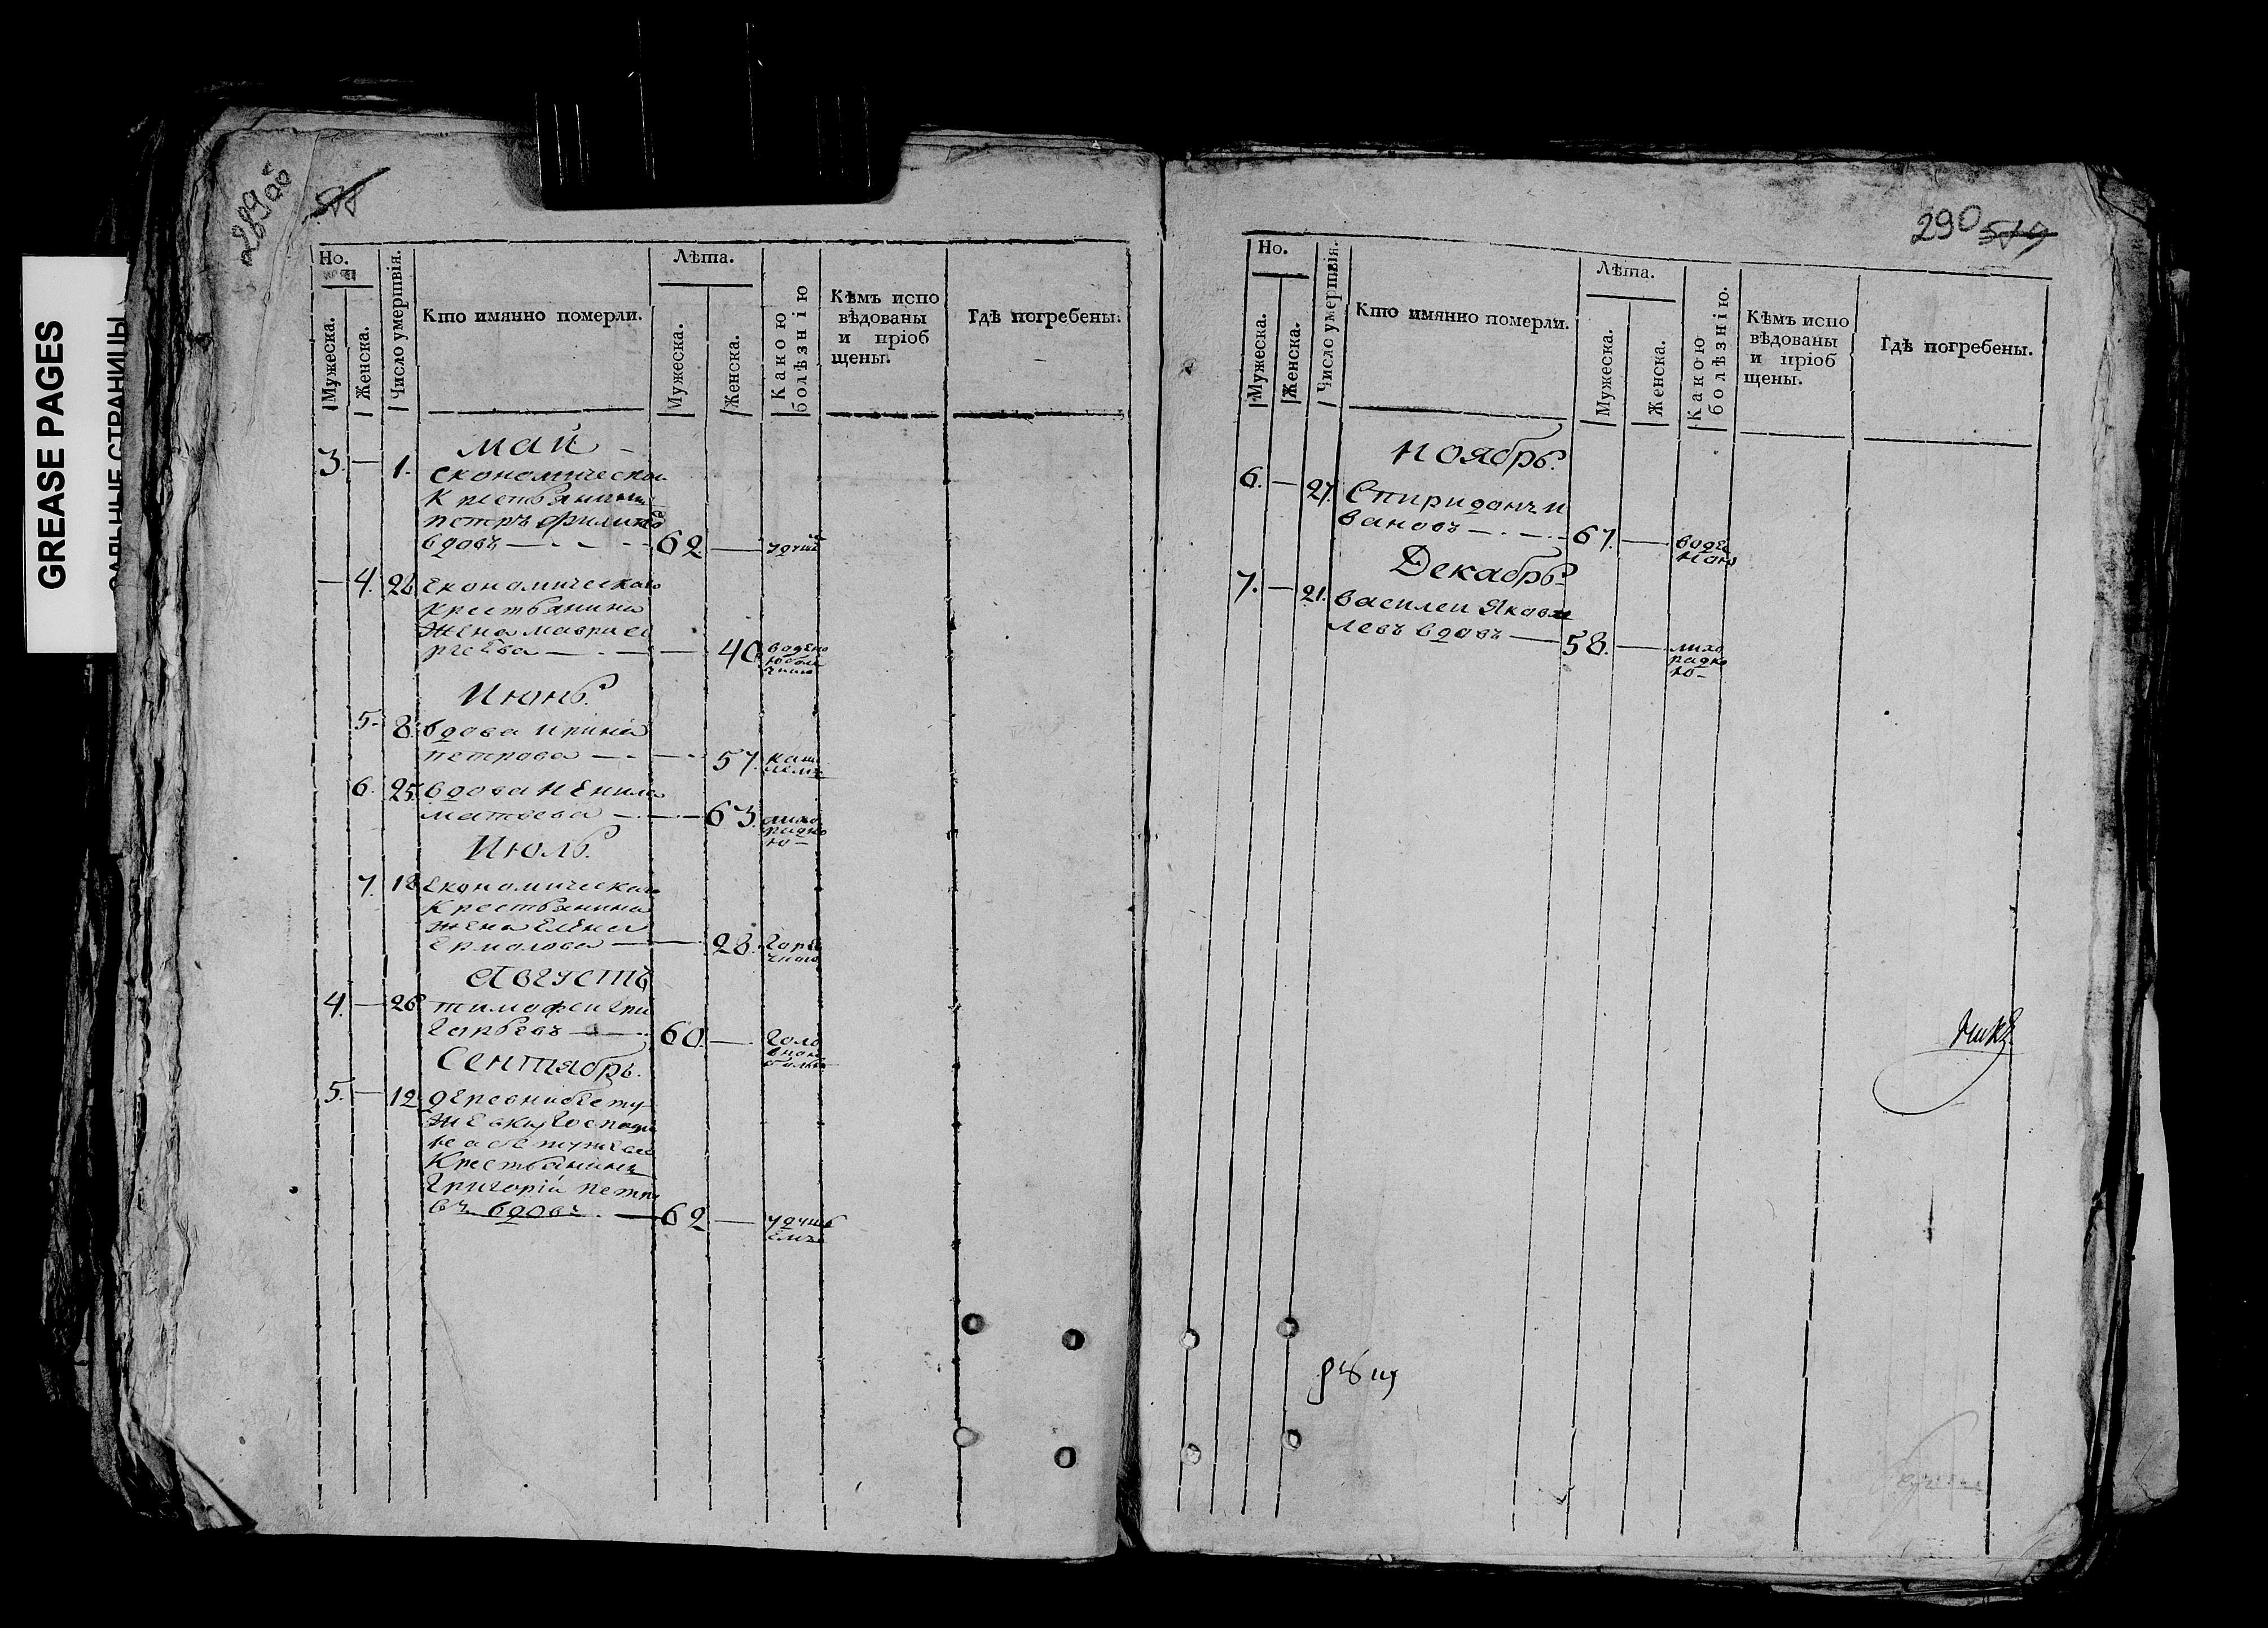 GREASE PAGES
САЛЬНЫЕ СТРАНИЦЫ
289об
Но.
Мужеска.
Женска.
Число умершвія.
Кто имянно померли.
Лѣта.
Мужеска.
Женска.
Какою болѣзнію
Кѣмъ испо
вѣдованы
и пріоб
щены.
Гдѣ погребены.
май
3. — 1. Економическои
Крестьянинъ
петръ филипо
вдовъ — 62. —
— 4. 28. Економическаго
крестьянина
Жена
— 40. водено
ю боле
зн
Июнь.
5. 8. вдова ирина
петрова — 57. каш
лемъ
6. 25. вдова Ненила
матвева — 63. лихо
радко
ю —
Июль.
7. 18 Економическаго
Крестьянина
жена Елена
Ермолова — 28. горя
чкою
Августъ
4. — 26 тимофеи гри
горьевъ — 60. — голо
вною
болью
Сентябрь.
5. — 12. деревни бесту
жевку господи
на бестужева
Крестьянинъ
Григоріи петро
въ вдовъ. — 62 — удушь
емъ
290 579
Но.
Мужеска.
Женска.
Число умершвія.
Кто имянно померли.
Лѣта.
Мужеска.
Женска.
Какою болѣзнію.
Кѣмъ испо
вѣдованы
и пріоб
щены.
Гдѣ погребены.
Ноябрь.
6. — 27. Спиридонъ и
вановъ — 67. — воде
ною
Декабрь.
7. — 21. василеи Яков
левъ вдовъ — 58. — лихо
радко
ю —